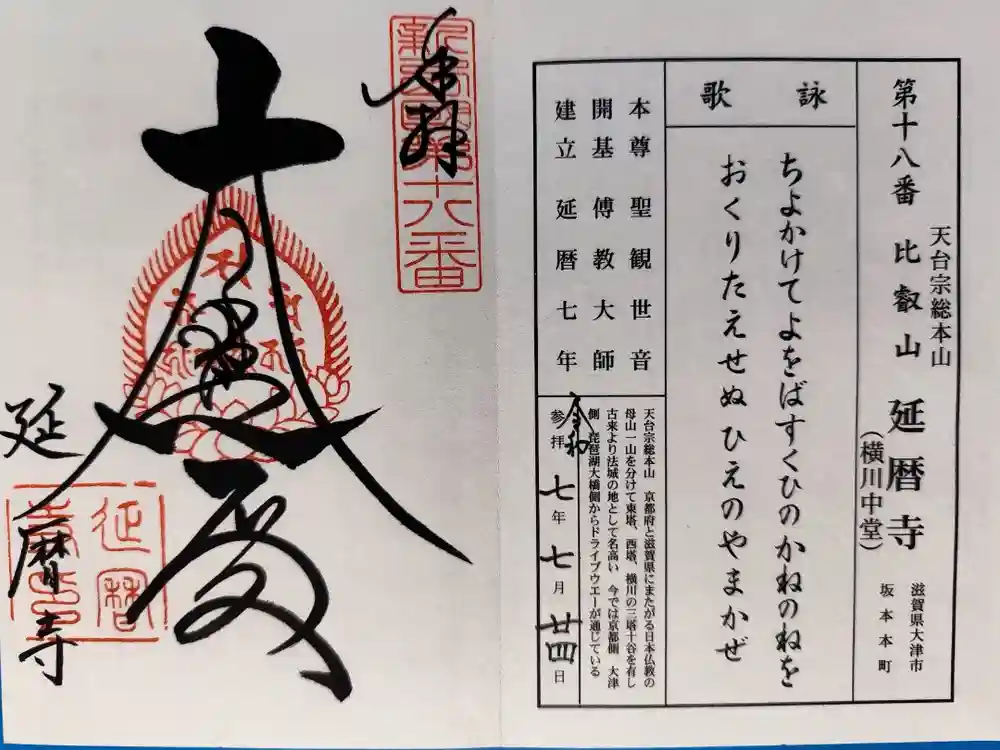 第十八番 天台宗総本山 比叡山 延暦寺
(横川中堂)
滋賀県大津市
坂本本町
詠歌
ちよかけてよをばすくひのかねのねを
おくりたえせぬひえのやまかぜ
本尊 聖観世音
開基 傅教大師
建立 延暦七年
天台宗総本山 京都府と滋賀県にまたがる日本仏教の
母山一山を分けて東塔、西塔、横川の三塔十谷を有し
古来より法城の地として名高い 今では京都側 大津
側 琵琶湖大橋側からドライブウエーが通じている
令和
参拝 七年七月廿四日
新西国第十八番
奉拝
大悲殿
延暦寺
延暦